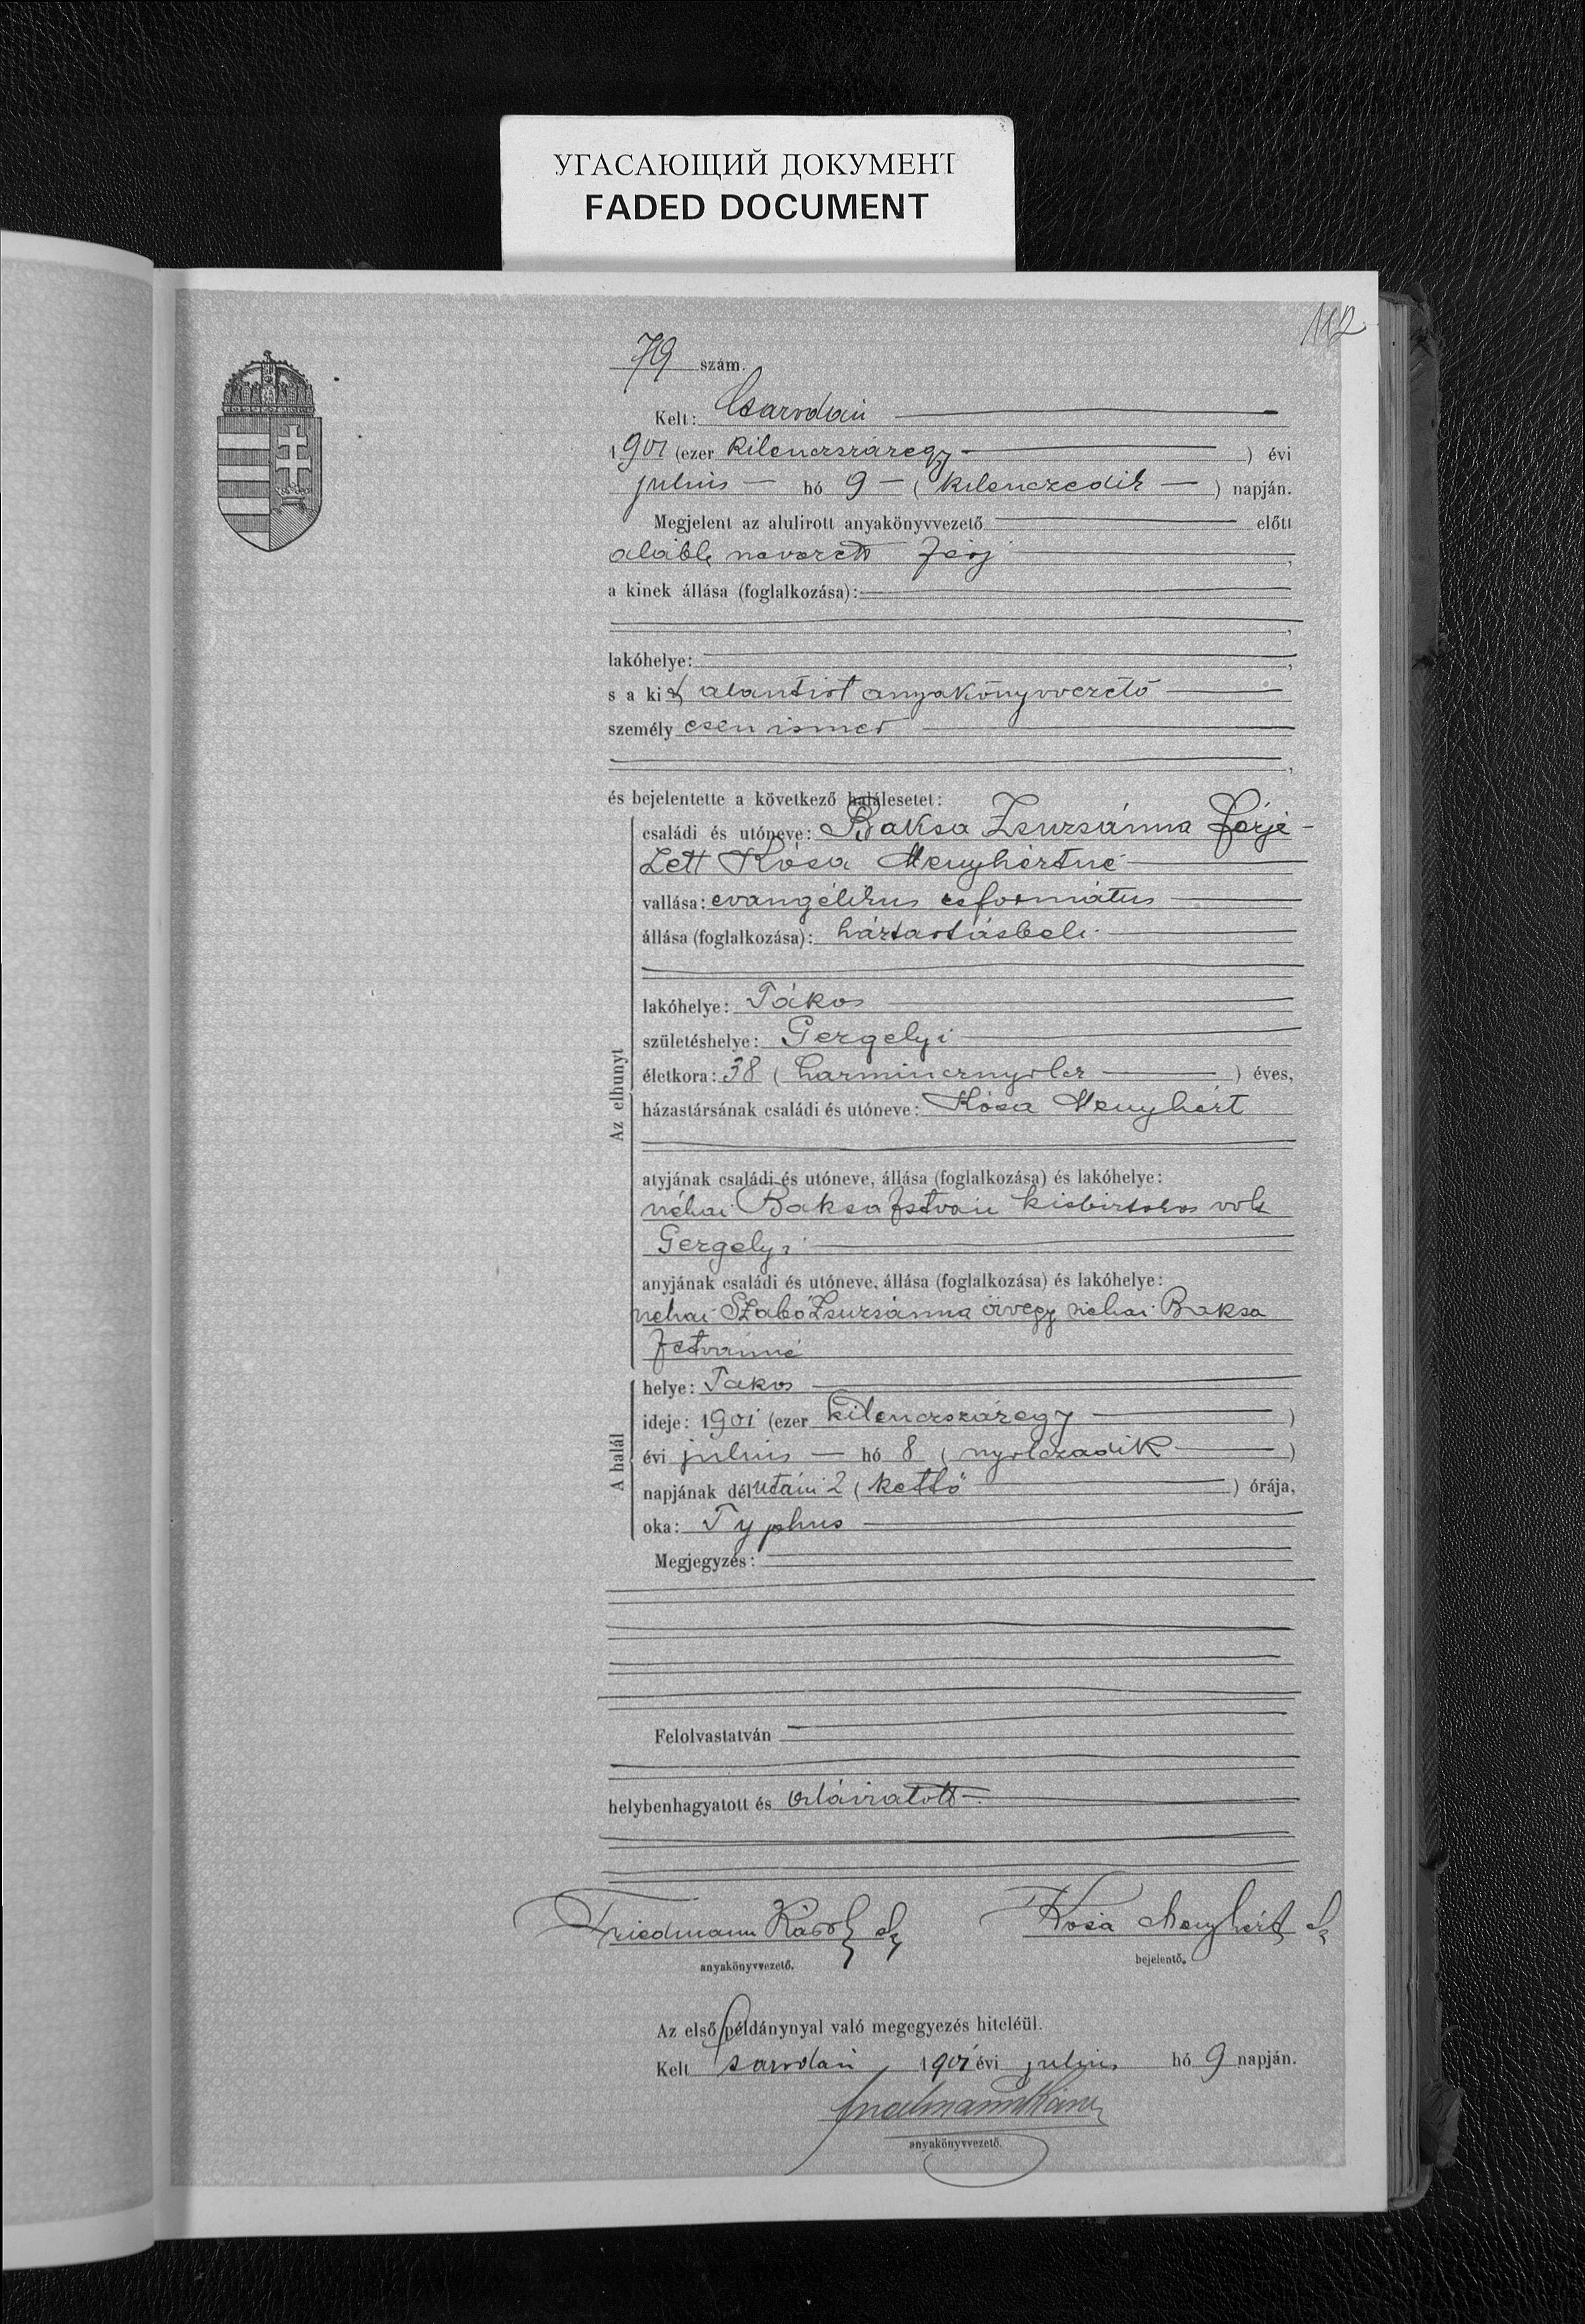 УГАСАЮЩИЙ ДОКУМЕНТ
FADED DOCUMENT
112
79 szám.
Kelt: Csarodán
1901 (ezer kilenczszázegy) évi
julius hó 9 (kilenczedik) napján.
Megjelent az alulirott anyakönyvvezető előtt
alább nevezett férj,
a kinek állása (foglalkozása):
lakóhelye:
s a kit alantirt anyakönyvvezető
személyesen ismer
és bejelentette a következő halálesetet:
Az elhunyt
családi és utóneve: Baksa Zsuzsánna férje-
zett Kósa Menyhértné
vallása: evangélikus református
állása (foglalkozása): háztartásbeli
lakóhelye: Tákos
születéshelye: Gergelyi
életkora: 38 (harmincznyolcz) éves,
házastársának családi és utóneve: Kósa Menyhért
atyjának családi és utóneve, állása (foglalkozása) és lakóhelye:
néhai Baksa István kisbirtokos volt
Gergelyi
anyjának családi és utóneve, állása (foglalkozása) és lakóhelye:
néhai Szabó Zsuzsánna özvegy néhai Baksa
Istvánné
A halál
helye: Takos
ideje: 1901 (ezer kilenczszázegy)
évi julius hó 8 (nyolczadik)
napjának délutáni 2 (kettő) órája,
oka: Typhus
Megjegyzés:
Felolvastatván
helybenhagyatott és aláiratott.
Friedmann Károly sk Kósa Menyhért sk
anyakönyvvezető. bejelentő.
Az első példánynyal való megegyezés hiteléül.
Kelt Csarodán, 1901 évi julius hó 9 napján.
Friedmann Károly
anyakönyvvezető.